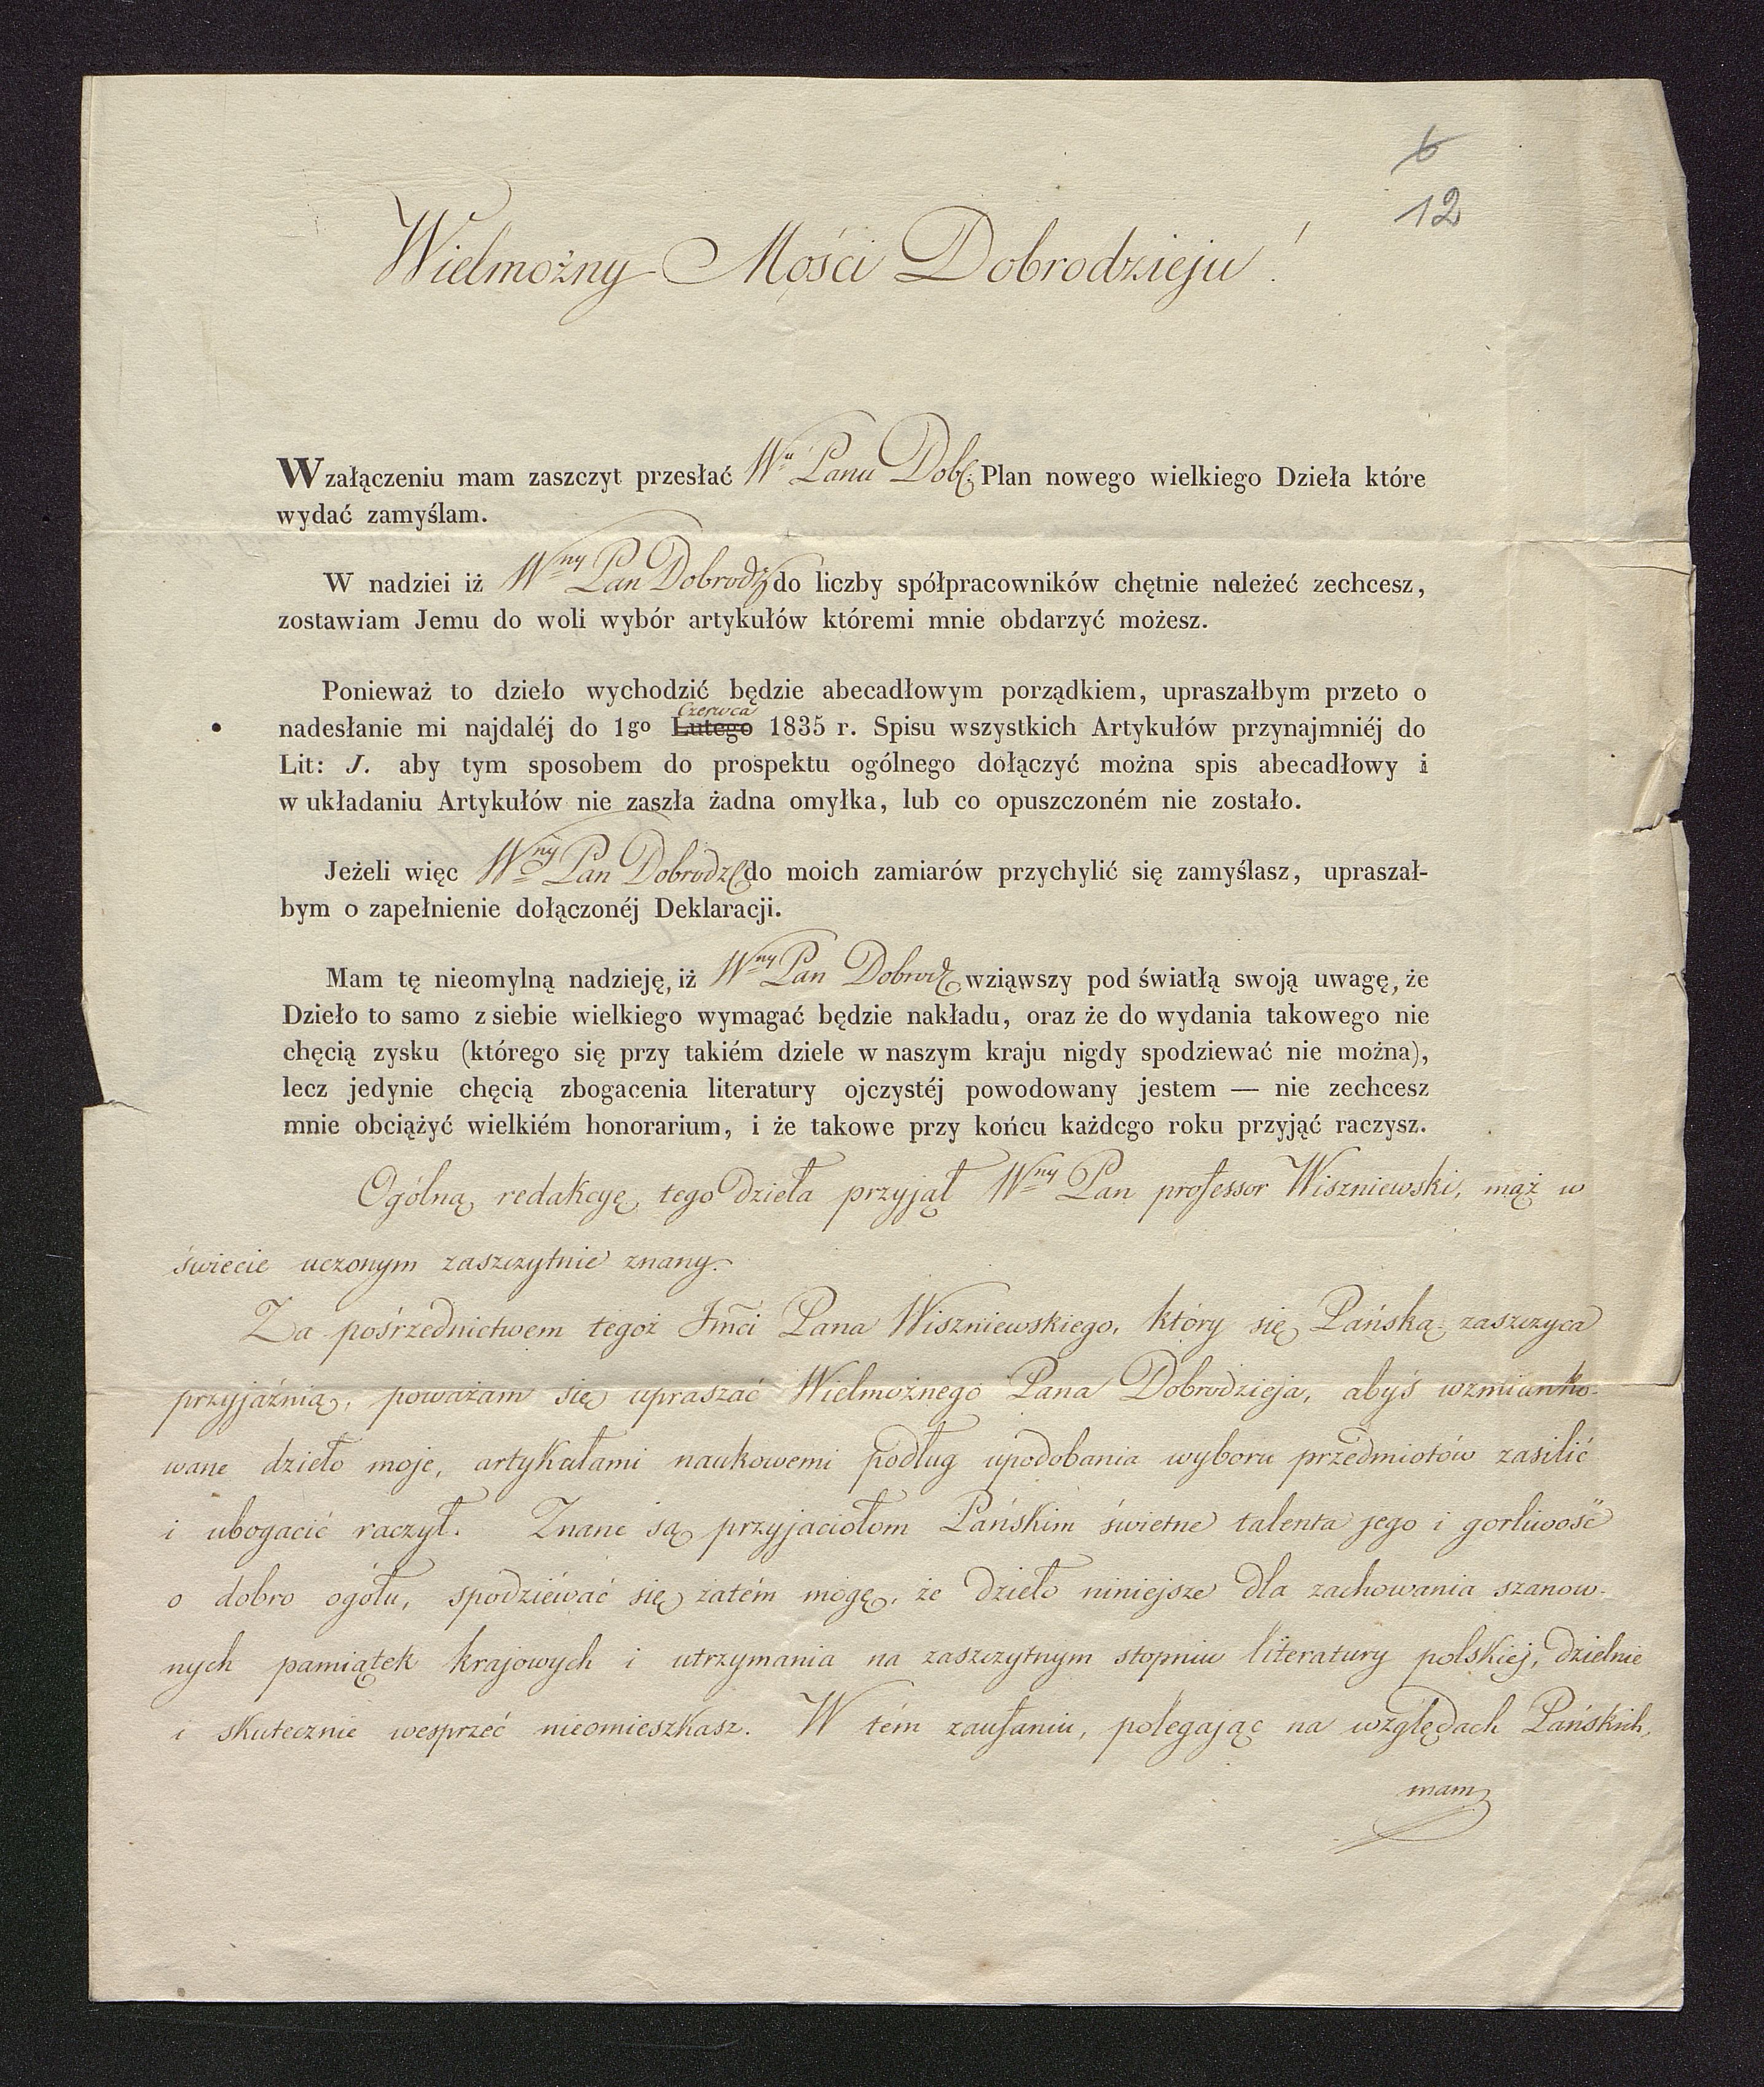 6
12
Wielmożny Mości Dobrodzieju!
W załączeniu mam zaszczyt przesłać Wu Panu Dob: Plan nowego wielkiego Dzieła które
wydać zamyślam.
W nadziei iż Wny Pan Dobrodz do liczby spółpracowników chętnie należeć zechcesz,
zostawiam Jemu do woli wybór artykułów któremi mnie obdarzyć możesz.
Ponieważ to dzieło wychodzić będzie abecadłowym porządkiem, upraszałbym przeto o
Czerwca
nadesłanie mi najdaléj do 1go Lutego 1835 r. Spisu wszystkich Artykułów przynajmniéj do
Lit: J. aby tym sposobem do prospektu ogólnego dołączyć można spis abecadłowy i
w układaniu Artykułów nie zaszła żadna omyłka, lub co opuszczoném nie zostało.
Jeżeli więc Wny Pan Dobrodz do moich zamiarów przychylić się zamyślasz, upraszał-
bym o zapełnienie dołączonéj Deklaracji.
Mam tę nieomylną nadzieję, iż Wny Pan Dobrodz wziąwszy pod światłą swoją uwagę, że
Dzieło to samo z siebie wielkiego wymagać będzie nakładu, oraz że do wydania takowego nie
chęcią zysku (którego się przy takiém dziele w naszym kraju nigdy spodziewać nie można),
lecz jedynie chęcią zbogacenia literatury ojczystéj powodowany jestem — nie zechcesz
mnie obciążyć wielkiém honorarium, i że takowe przy końcu każdego roku przyjąć raczysz.
Ogólną redakcyę tego dzieła przyjął Wny Pan professor Wiszniewski, mąż w
świecie uczonym zaszczytnie znany.
Za pośrzednictwem tegoż Jmci Pana Wiszniewskiego, który się Pańską zaszczyca
przyjaźnią, poważam się upraszać Wielmożnego Pana Dobrodzieja, abyś wzmianko-
wane dzieło moje, artykułami naukowemi podług upodobania wyboru przedmiotów zasilić
i ubogacić raczył. Znane są przyjaciołom Pańskim świetne talenta jego i gorliwość
o dobro ogółu, spodziéwać się zatém mogę, że dzieło niniejsze dla zachowania szanow-
nych pamiątek krajowych i utrzymania na zaszczytnym stopniu literatury polskiej, dzielnie
i skutecznie wesprzeć nieomieszkasz. W tém zaufaniu, polegając na względach Pańskich,
mam